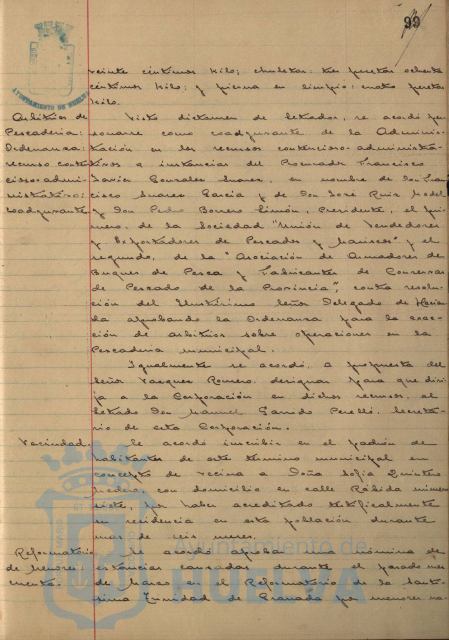 99
AYUNTAMIENTO DE HUELVA
veinte céntimos kilo; chuletas: tres pesetas ochenta
céntimos kilo; y pierna en limpio: cuatro pesetas
kilo.
Arbitrios de
Pescadería:
Ordenanza:
recurso conten
cioso-admi-
nistrativo:
coadyuvante
Visto dictamen de letrados, se acordó per
sonarse como coadyuvante de la Adminis-
tración en los recursos contencioso-administra-
tivos a instancias del Procurador Francisco
Javier Gonzales Suarez, en nombre de Don Fran
cisco Suarez García y de Don José Ruiz
y Don Pedro Borrero Limón, Presidente, el pri
mero, de la Sociedad "Unión de Vendedores
y Exportadores de Pescados y Mariscos" y el
segundo, de la "Asociación de Armadores de
Buques de Pesca y Fabricantes de Conservas
de Pescado de la Provincia", contra resolu-
ción del Ilustrísimo Señor Delegado de Hacien
da aprobando la Ordenanza para la exac-
ción de arbitrios sobre operaciones en la
Pescadería municipal.
Igualmente se acordó, a propuesta del
Señor Vazquez Romero, designar para que diri
ja a la Corporación en dichos recursos, al
letrado Don Manuel Garrido Perelló, Secreta-
rio de esta Corporación.
Vecindad.
Se acordó inscribir en el padrón de
habitantes de este término municipal en
concepto de vecina a Doña Sofía Quintero
con domicilio en calle Rábida número
siete, por haber acreditado testificalmente
su residencia en esta población durante
mas de seis meses.
Reformatorio
de Menores
Se acordó aprobar una nómina de
estancias causadas durante el pasado mes
de Marzo en el Reformatorio de la Santí-
sima Trinidad de Granada por menores na-
Ayuntamiento de
HUELVA